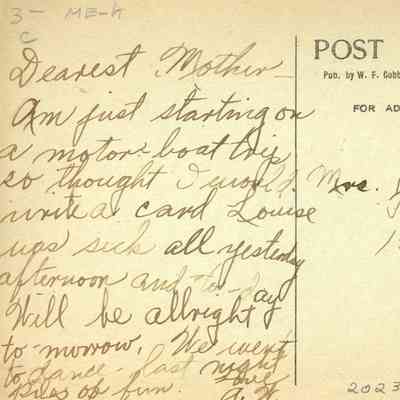 3- ME-K
C
Dearest Mother-
Am just starting on
a motor-boat trip
so thought I would
write a card Louise
was sick all yesterday
afternoon and to-day
Will be allright
to-morrow. We went
to dance last night
Piles of fun. Love
POST
Pub. by W. F. Gobb
FOR AD
Mrs.
2023